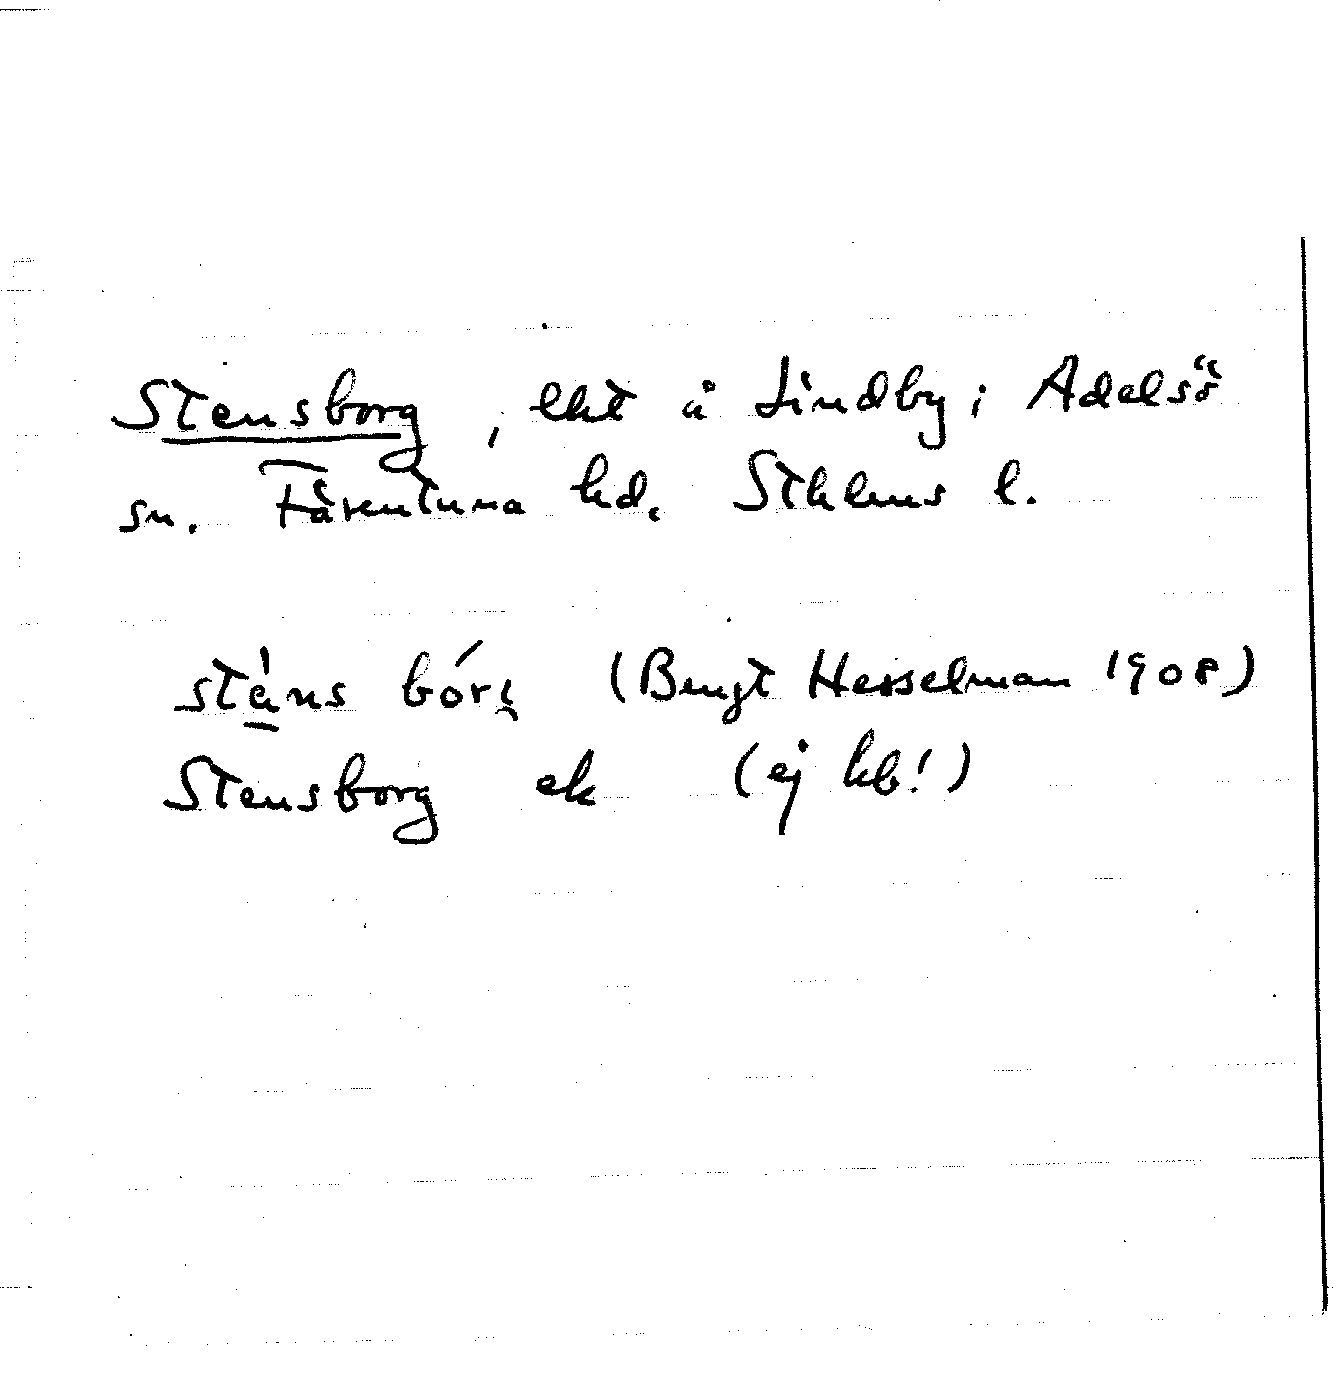 Stensborg, lht å Lindby i Adelsö
sn. Färentuna hd. Sthlms l.
Bengt Hesselman 1908)
Stensborg ek (ej kb!)